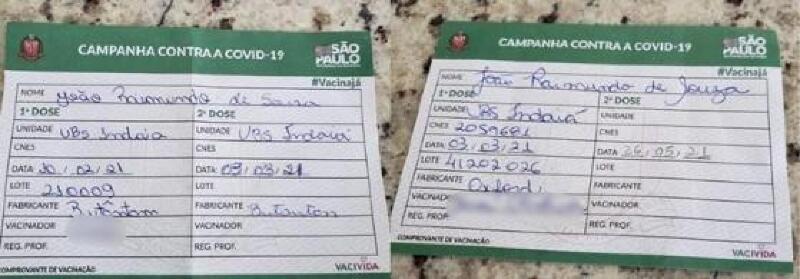 CAMPANHA CONTRA A COVID-19
SÃO PAULO
#Vacinajá
NOME João Raimundo de Souza
1ª DOSE 2ª DOSE
UNIDADE UBS Indaiá UNIDADE UBS Indaiá
CNES CNES
DATA 10/02/21 DATA 03/03/21
LOTE 210009 LOTE
FABRICANTE Butantan FABRICANTE Butantan
VACINADOR VACINADOR
REG. PROF. REG. PROF.
COMPROVANTE DE VACINAÇÃO
VACIVIDA
CAMPANHA CONTRA A COVID-19
SÃO PAULO
#Vacinajá
NOME João Raimundo de Souza
1ª DOSE 2ª DOSE
UNIDADE UBS Indaiá UNIDADE
CNES 2059681 CNES
DATA 03/03/21 DATA 26/05/21
LOTE 41202026 LOTE
FABRICANTE Oxford FABRICANTE
VACINADOR VACINADOR
REG. PROF. REG. PROF.
COMPROVANTE DE VACINAÇÃO
VACIVIDA